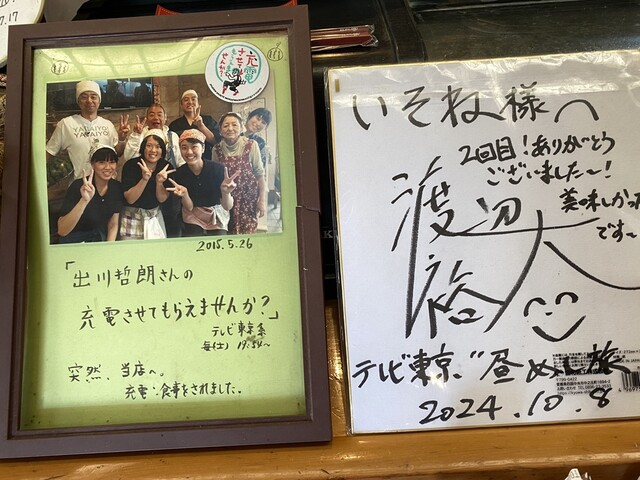 7.17
充電
させて
もらえま
せんか?
YAEAIYO!
2015.5.26
「出川哲朗さんの
充電させてもらえませんか?」
テレビ東京系
毎(土) 19:54〜
突然、当店へ。
充電・食事をされました。
いそね様へ
2回目!ありがとう
ございました〜!
美味しかった
です〜
渡辺
裕太
テレビ東京、"昼めし旅
2024.10.8